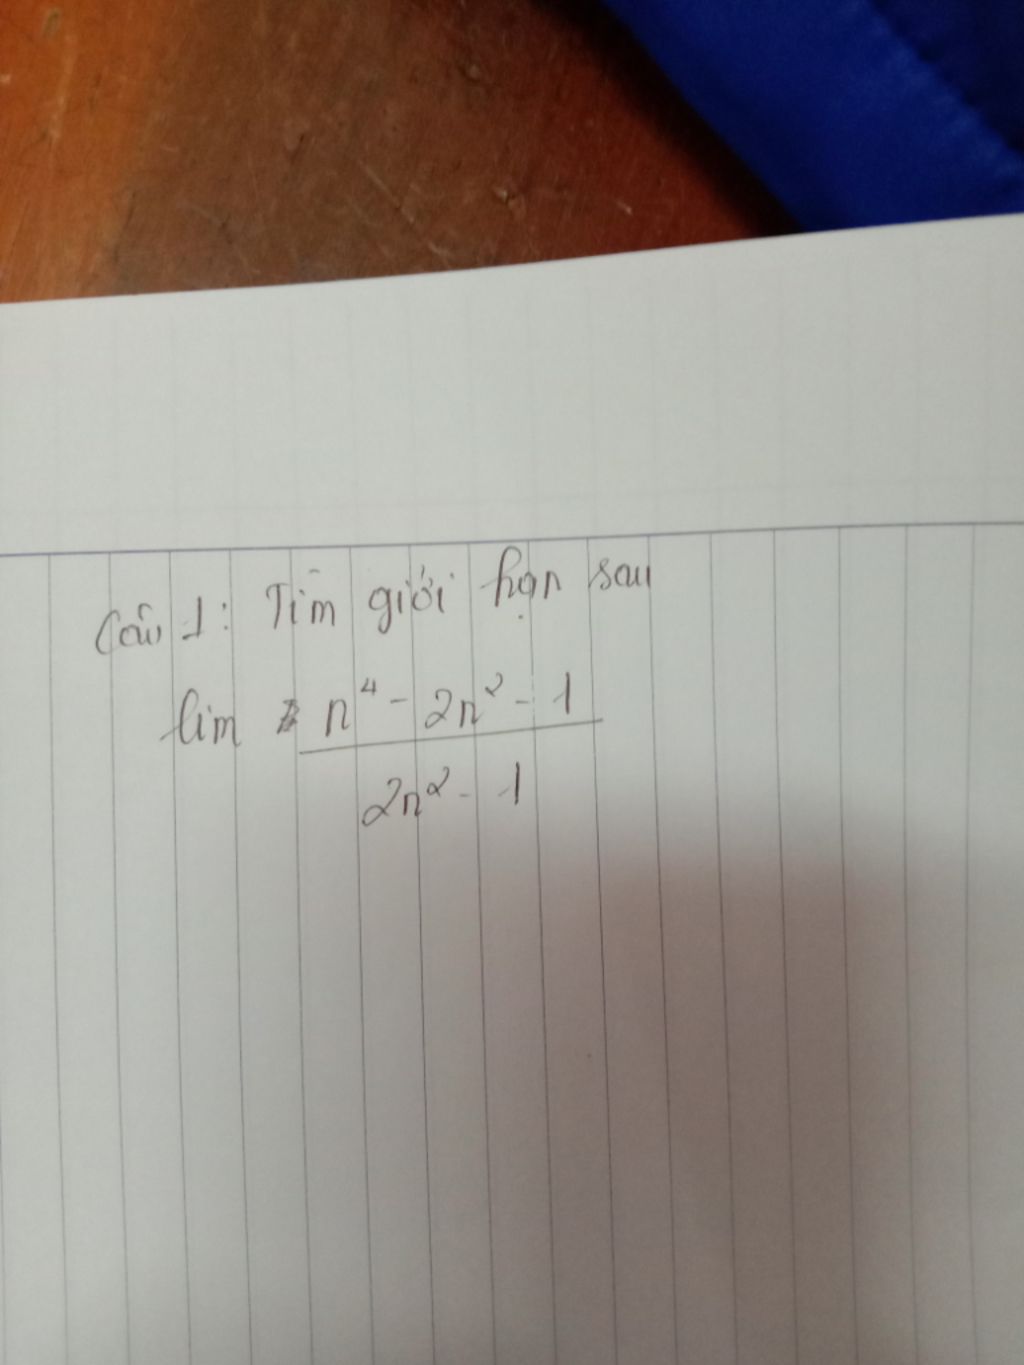 Câu 1: Tìm giới hạn sau
lim n⁴ - 2n² - 1
2n² - 1